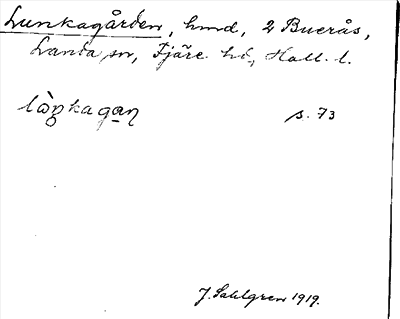 Lunkagården, hmd, 2 Buerås,
Landa sn, Fjäre hd, Hall. l.
lòŋkagaɳ s. 73
J. Sahlgren 1919.